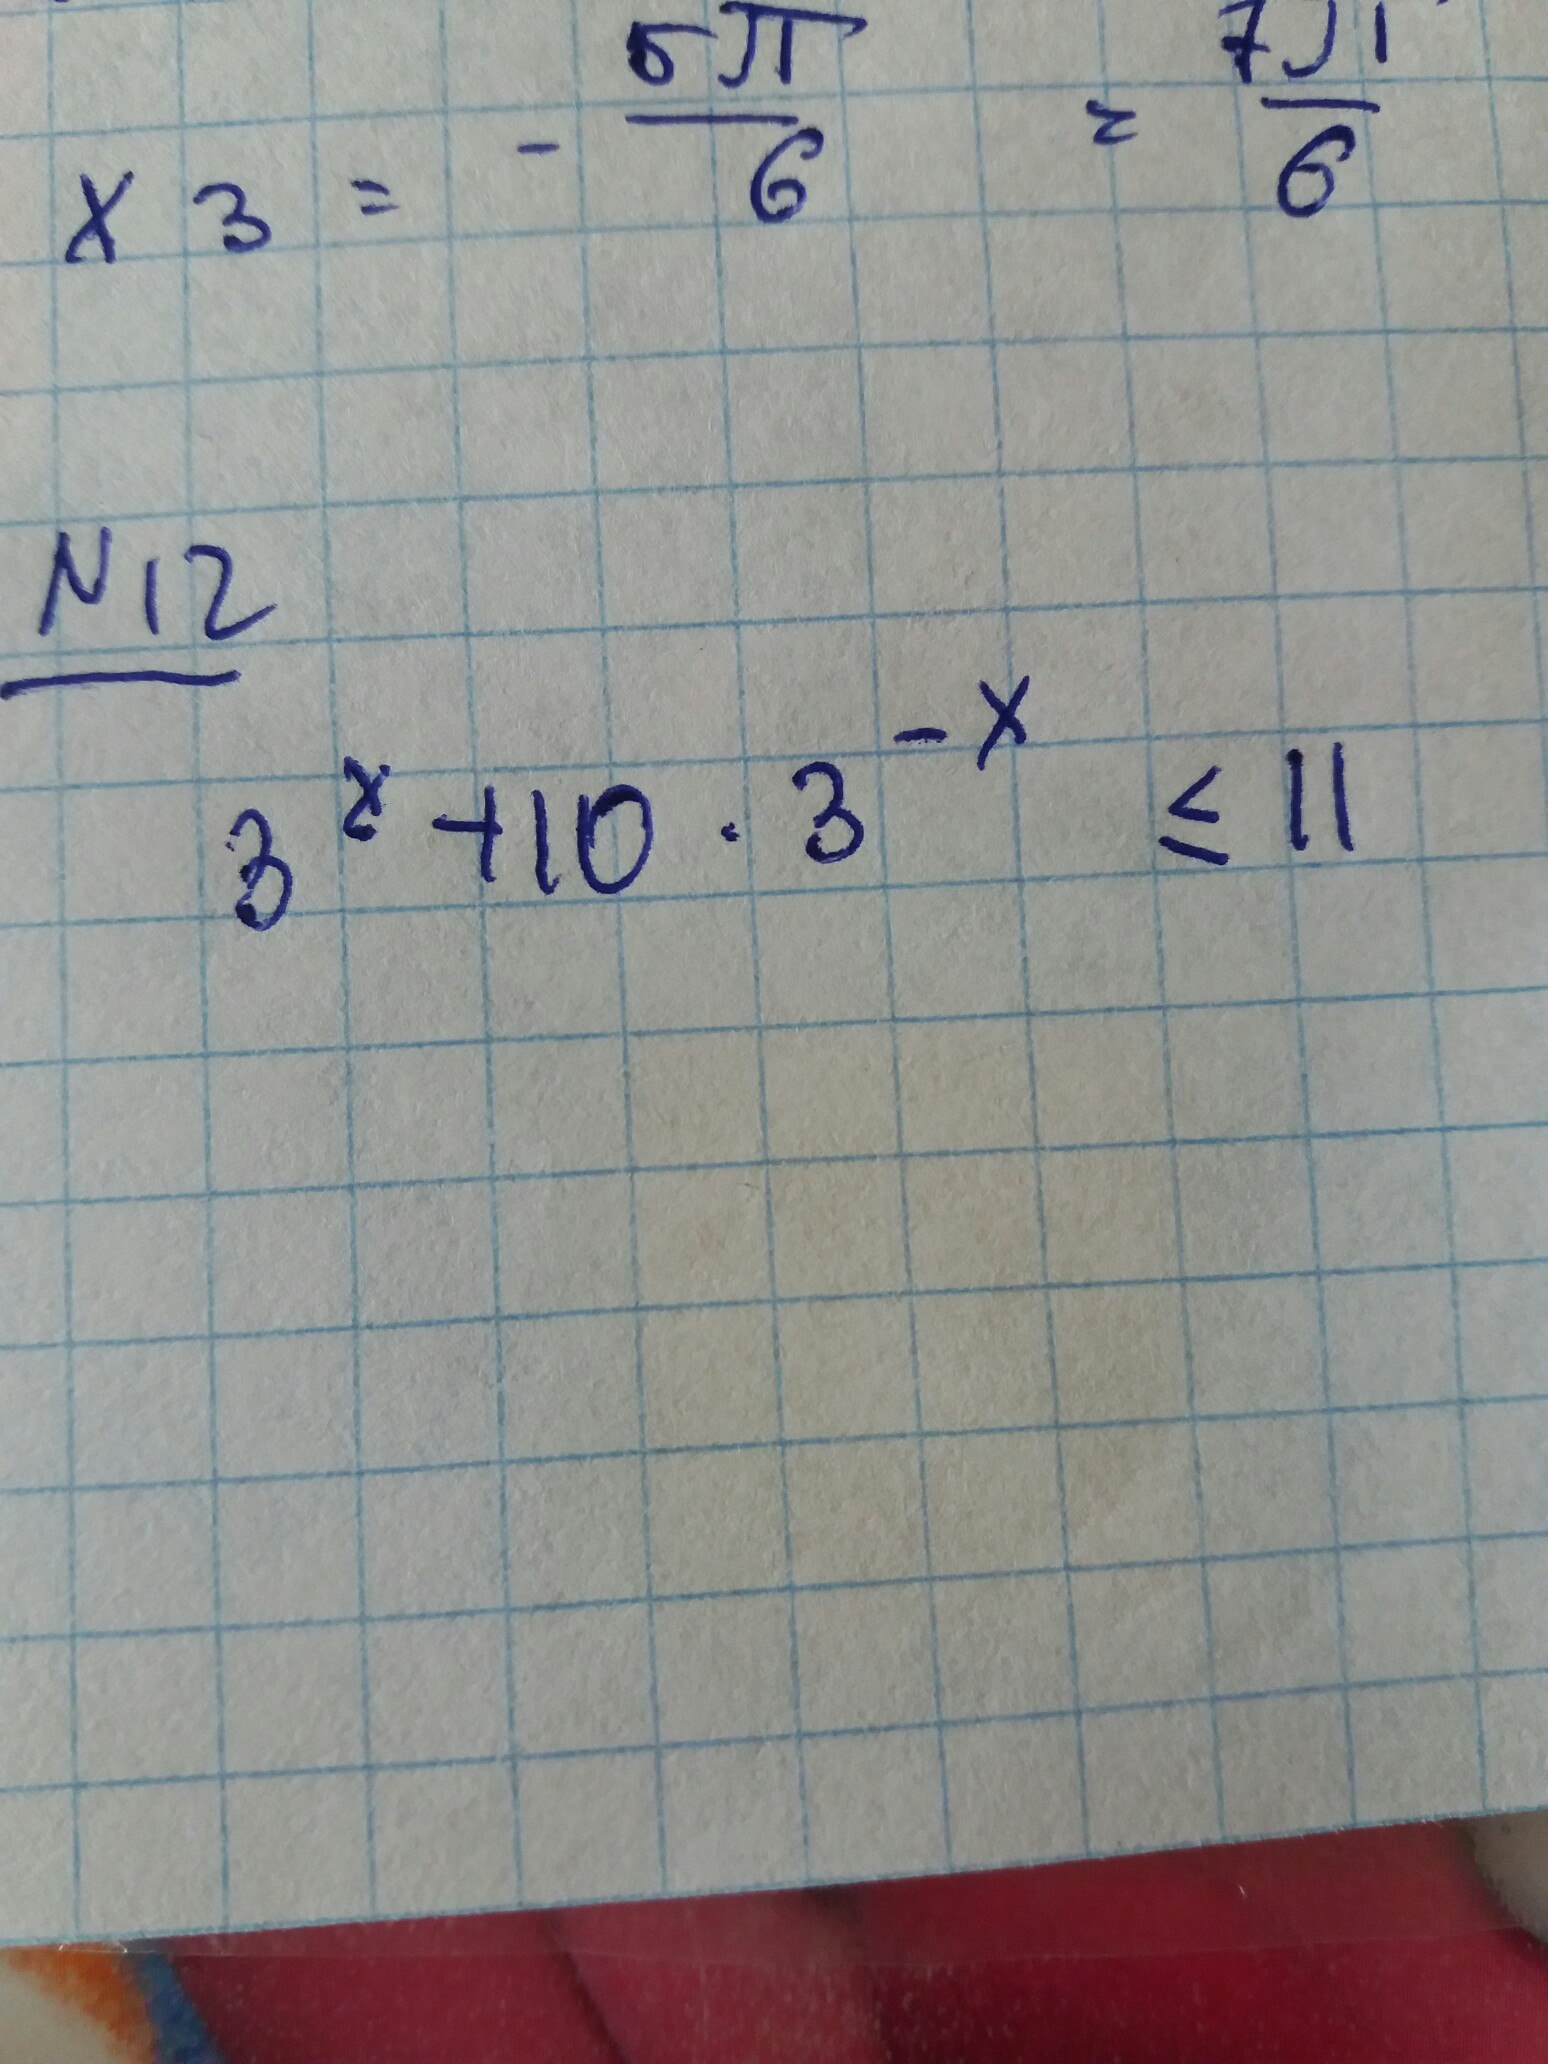 x3 = - 5π/6 = 7π/6
N12
3^x + 10 · 3^-x ≤ 11